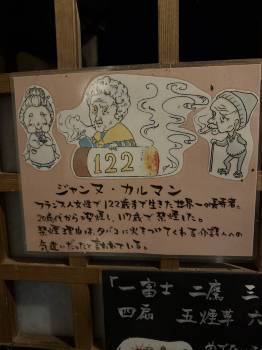 122
ジャンヌ・カルマン
フランス人女性で122歳まで生きた世界一の長寿者。
20歳代から喫煙し、117歳で禁煙した。
禁煙理由は、タバコに火をつけてくれる介護人への
気遣いだったと言われている。
「一富士 二鷹 三
四扇 五煙草 六